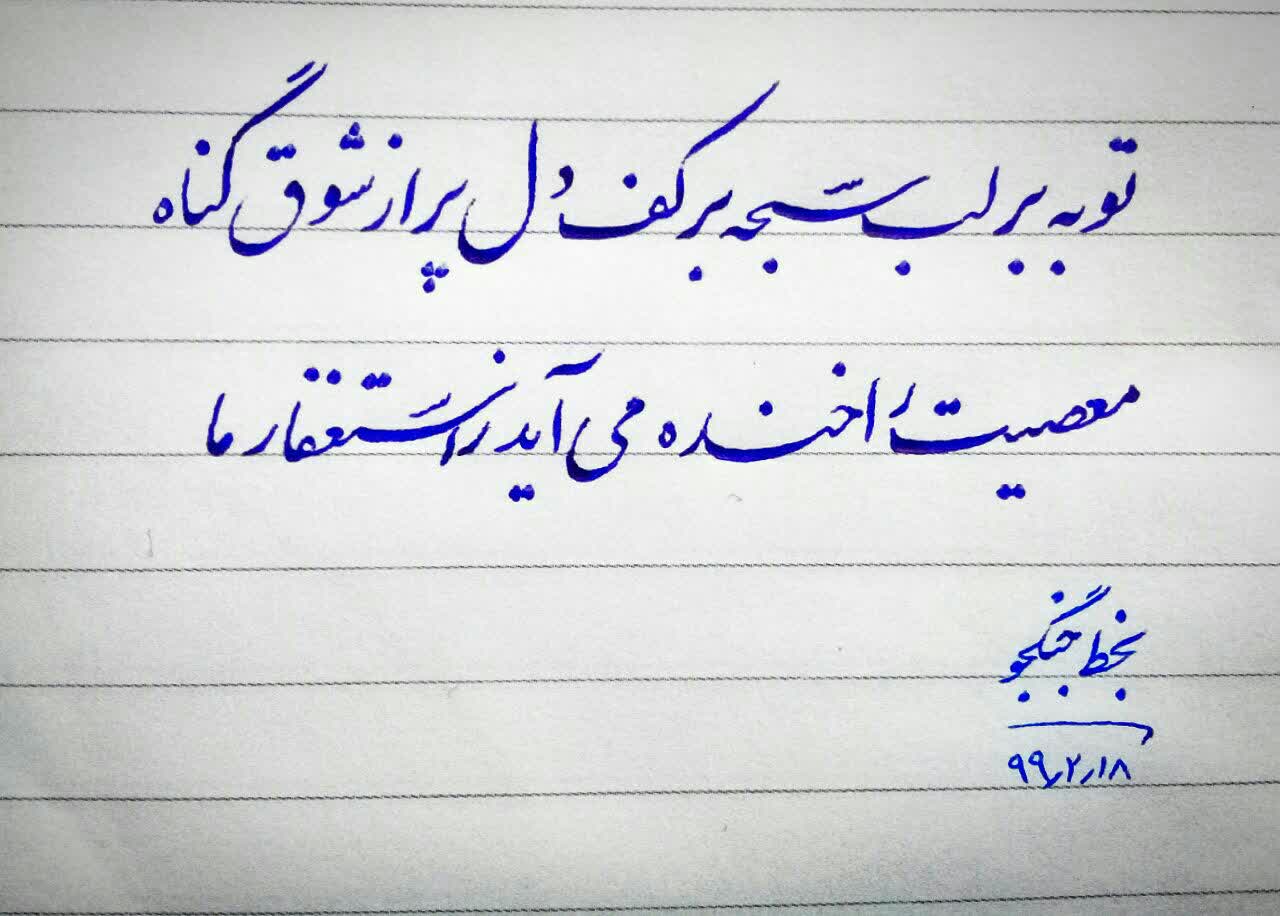 توبه بر لب سبحه بر کف دل پر از شوق گناه
معصیت را خنده می آید ز استغفار ما
بخط جنگجو
۹۹٫۲٫۱۸